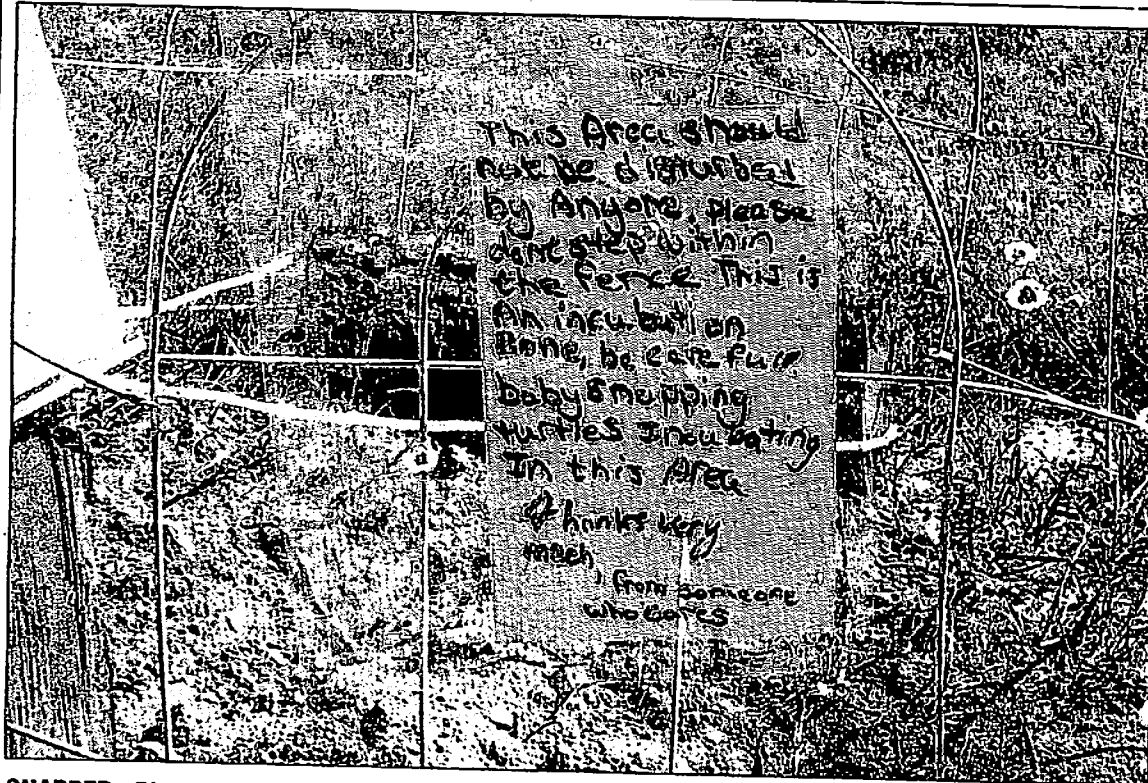 This Area should
not be disturbed
by Anyone, please
dont step within
the fence This is
An incubation
Zone, be carefull
baby Snapping
turtles Incubating
In this Area
Thanks very
much,
from someone
who cares